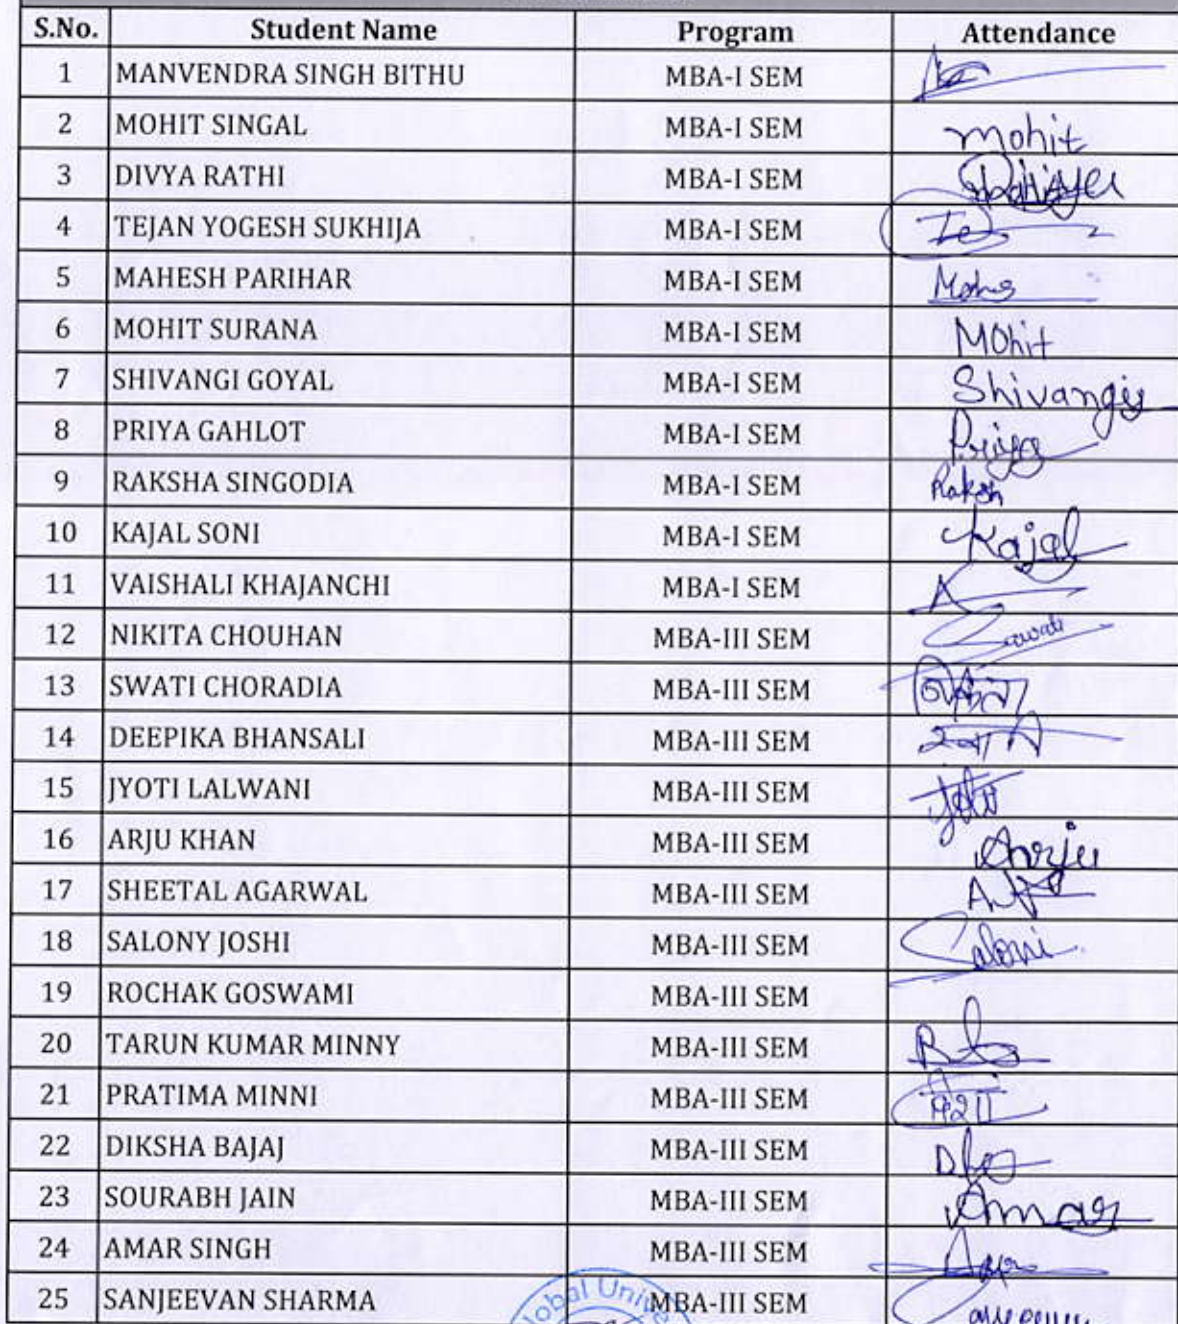 S.No. Student Name Program Attendance
1 MANVENDRA SINGH BITHU MBA-I SEM
2 MOHIT SINGAL MBA-I SEM mohit
3 DIVYA RATHI MBA-I SEM
4 TEJAN YOGESH SUKHIJA MBA-I SEM
5 MAHESH PARIHAR MBA-I SEM
6 MOHIT SURANA MBA-I SEM MOhit
7 SHIVANGI GOYAL MBA-I SEM Shivangi
8 PRIYA GAHLOT MBA-I SEM Priya
9 RAKSHA SINGODIA MBA-I SEM Raksh
10 KAJAL SONI MBA-I SEM Kajal
11 VAISHALI KHAJANCHI MBA-I SEM
12 NIKITA CHOUHAN MBA-III SEM
13 SWATI CHORADIA MBA-III SEM
14 DEEPIKA BHANSALI MBA-III SEM
15 JYOTI LALWANI MBA-III SEM
16 ARJU KHAN MBA-III SEM
17 SHEETAL AGARWAL MBA-III SEM
18 SALONY JOSHI MBA-III SEM Saloni
19 ROCHAK GOSWAMI MBA-III SEM
20 TARUN KUMAR MINNY MBA-III SEM
21 PRATIMA MINNI MBA-III SEM
22 DIKSHA BAJAJ MBA-III SEM
23 SOURABH JAIN MBA-III SEM Amar
24 AMAR SINGH MBA-III SEM
25 SANJEEVAN SHARMA MBA-III SEM